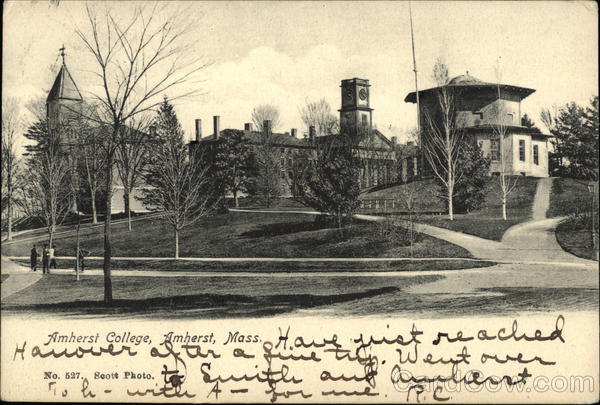 Amherst College, Amherst, Mass. Have just reached
Hanover after a fine trip. Went over
No. 527. Scott Photo. to Smith and Amherst
with A- for me. R.C.
CardCow.com